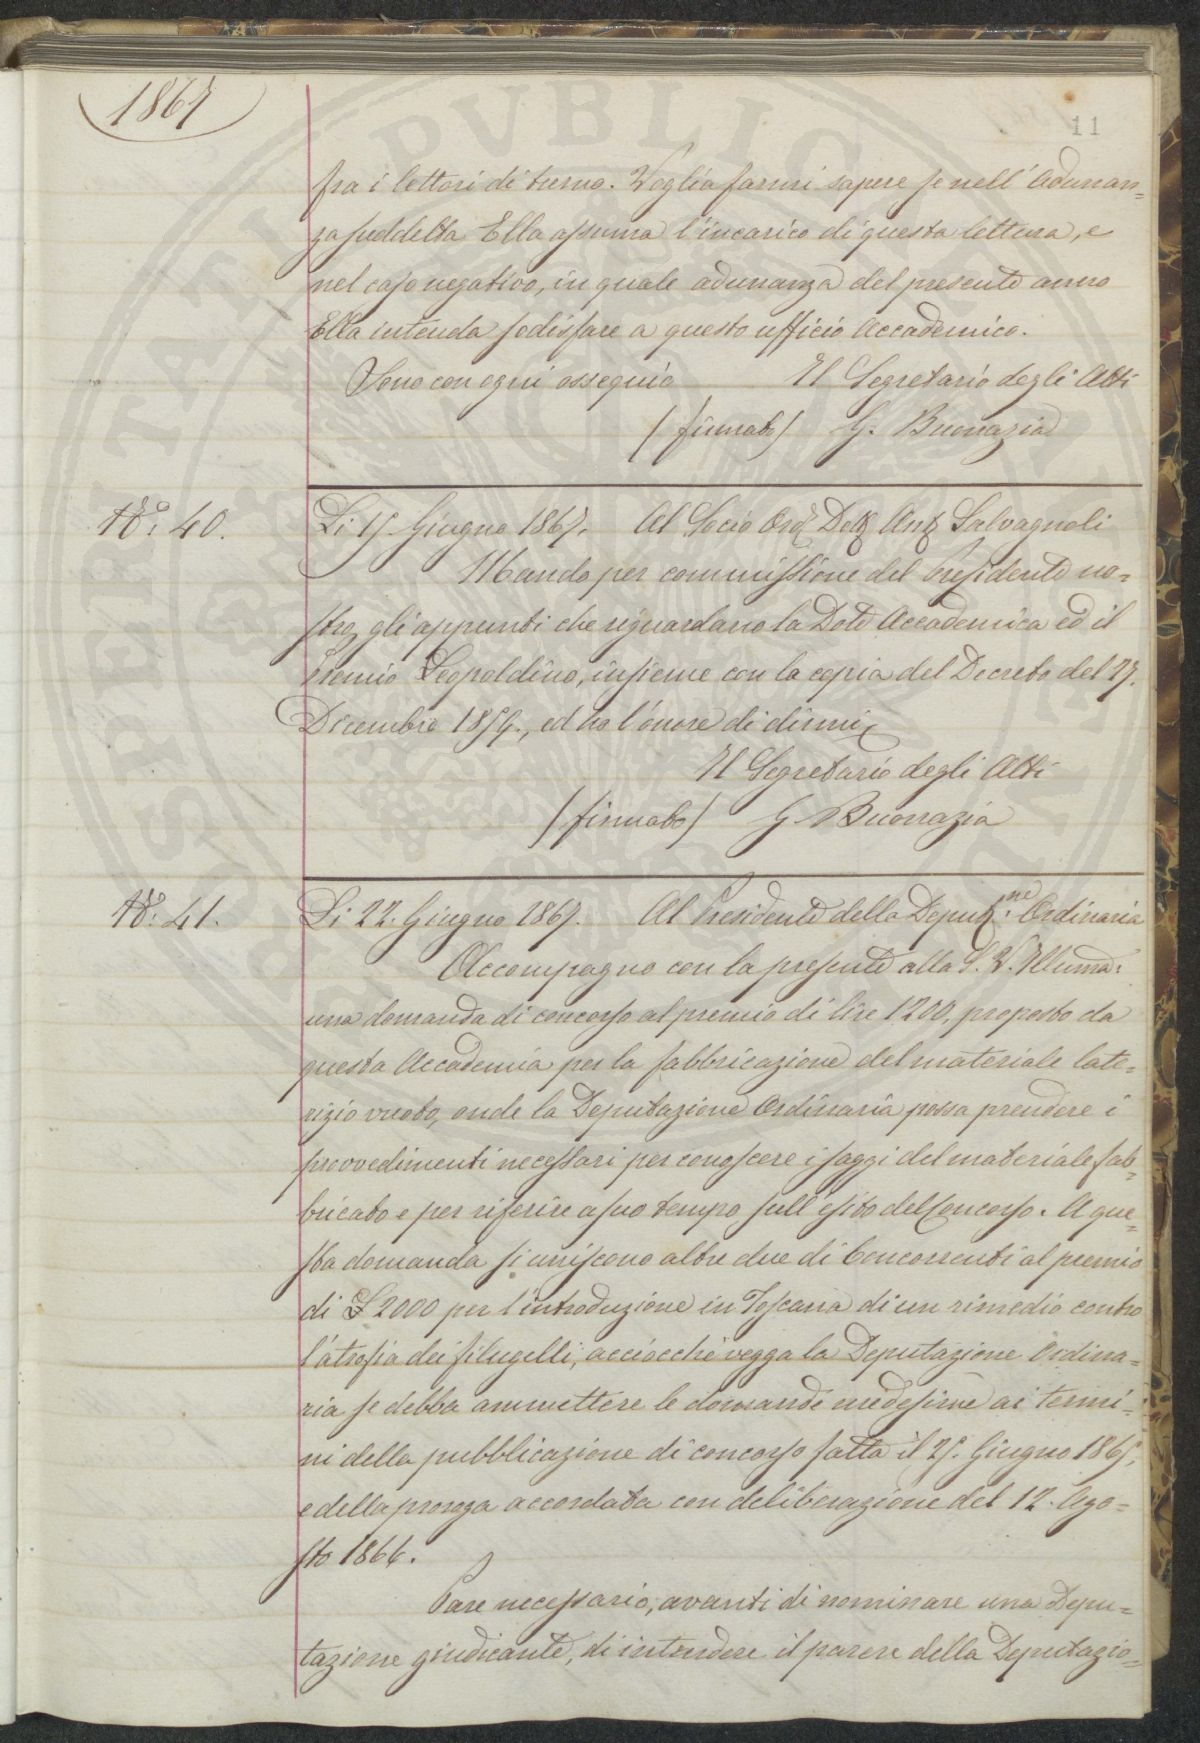 1867
11
fra i lettori di turno. Voglia farmi sapere se nell'Adunan=
za suddetta Ella assuma l'incarico di questa lettura, e
nel caso negativo, in quale adunanza del presente anno
Ella intenda sodisfare a questo ufficio Accademico.
Sono con ogni ossequio Il Segretario degli Atti
(firmato) G. Buonazia
N°. 40. Li 17. Giugno 1867. Al Socio Ord. Dott. Ant. Salvagnoli
Mando per commissione del Presidente no=
stro, gli appunti che riguardano la Dote Accademica ed il
Premio Leopoldino, insieme con la copia del Decreto del 27.
Dicembre 1859., ed ho l'onore di dirmi
Il Segretario degli Atti
(firmato) G. Buonazia
N°. 41. Li 22. Giugno 1867. Al Presidente della Deput.ne Ordinaria
Accompagno con la presente alla S. V. Illuma:
una domanda di concorso al premio di lire 1200, proposto da
questa Accademia per la fabbricazione del materiale late=
rizio vuoto, onde la Deputazione Ordinaria possa prendere i
provvedimenti necessari per conoscere i saggi del materiale fab=
bricato e per riferire a suo tempo sull'esito del Concorso. A que=
sta domanda si uniscono altre due di Concorrenti al premio
di £ 2000 per l'introduzione in Toscana di un rimedio contro
l'atrofia dei filugelli, acciocchè vegga la Deputazione Ordina=
ria se debba ammettere le domande medesime ai termi=
ni della pubblicazione di concorso fatta il 25. Giugno 1865,
e della proroga accordata con deliberazione del 12. Ago=
sto 1866.
Pare necessario, avanti di nominare una Depu=
tazione giudicante, di intendere il parere della Deputazio=
SPERITATI PVBLICAE